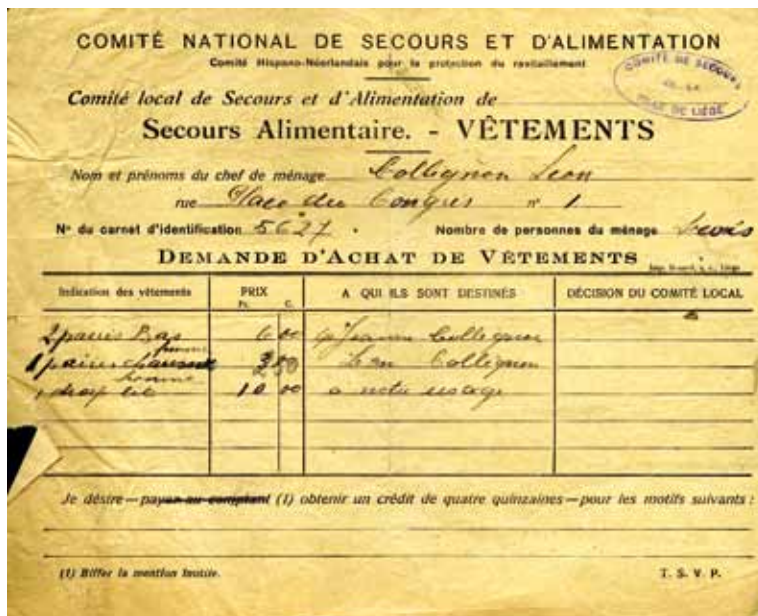 COMITÉ NATIONAL DE SECOURS ET D'ALIMENTATION
Comité Hispano-Néerlandais pour la protection du ravitaillement
COMITÉ DE SECOURS
VILLE DE LIÉGE
Comité local de Secours et d'Alimentation de
Secours Alimentaire. - VÊTEMENTS
Nom et prénoms du chef de ménage Collignon Leon
rue Place du Congres n° 1
N° du carnet d'identification 5627. Nombre de personnes du ménage
DEMANDE D'ACHAT DE VÊTEMENTS
Indication des vêtements PRIX Fr. C. A QUI ILS SONT DESTINÉS DÉCISION DU COMITÉ LOCAL
2 paires Bas 6 00 Collignon
femme
1 paires 50 Leon Collignon
homme
1 drap lit 10 00 a notre usage
Je désire — payer au comptant (1) obtenir un crédit de quatre quinzaines — pour les motifs suivants :
(1) Biffer la mention inutile. T. S. V. P.